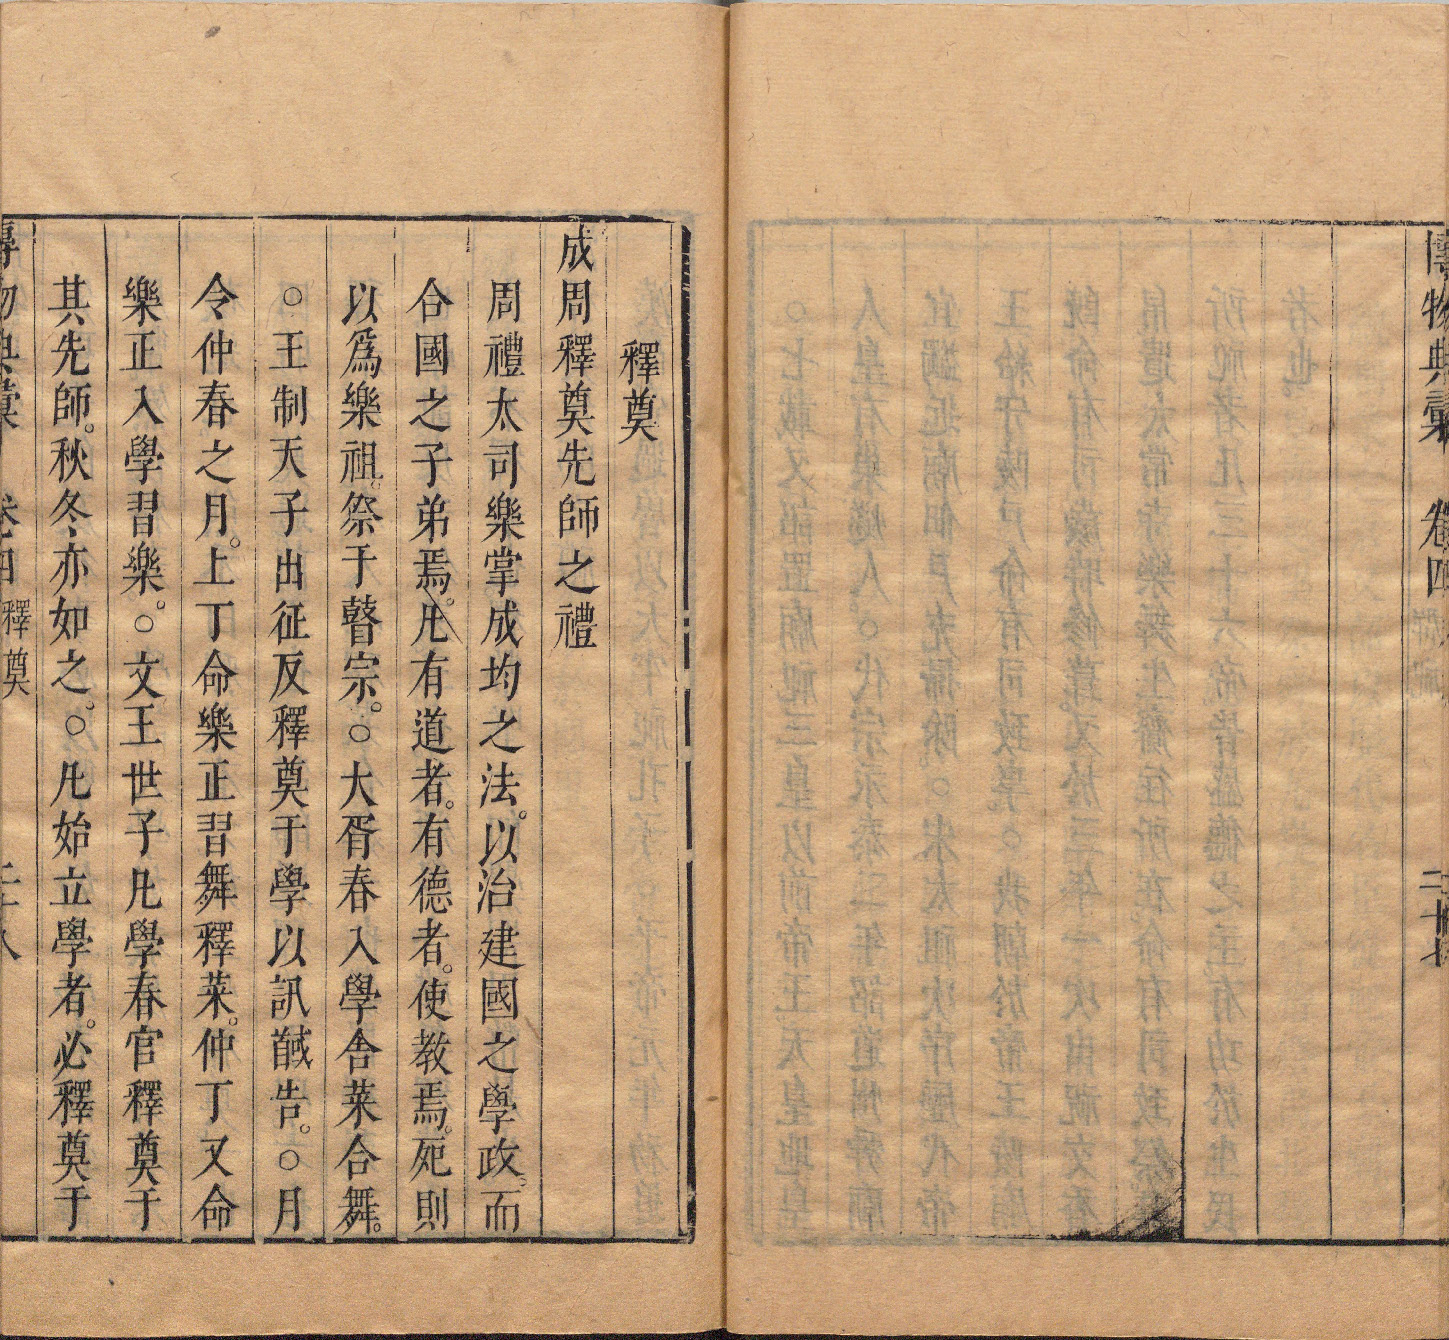 博物典彙 卷四 二十七
釋奠
成周釋奠先師之禮
周禮太司樂掌成均之法。以治建國之學政。而
合國之子弟焉。凡有道者。有德者。使教焉。死則
以爲樂祖。祭于瞽宗。○大胥春入學舍菜合舞。
○王制天子出征反釋奠于學以訊馘告。○月
令仲春之月。上丁命樂正習舞釋菜。仲丁又命
樂正入學習樂。○文王世子凡學春官釋奠于
其先師。秋冬亦如之。○凡始立學者。必釋奠于
博物典彙 卷四 釋奠 二十八